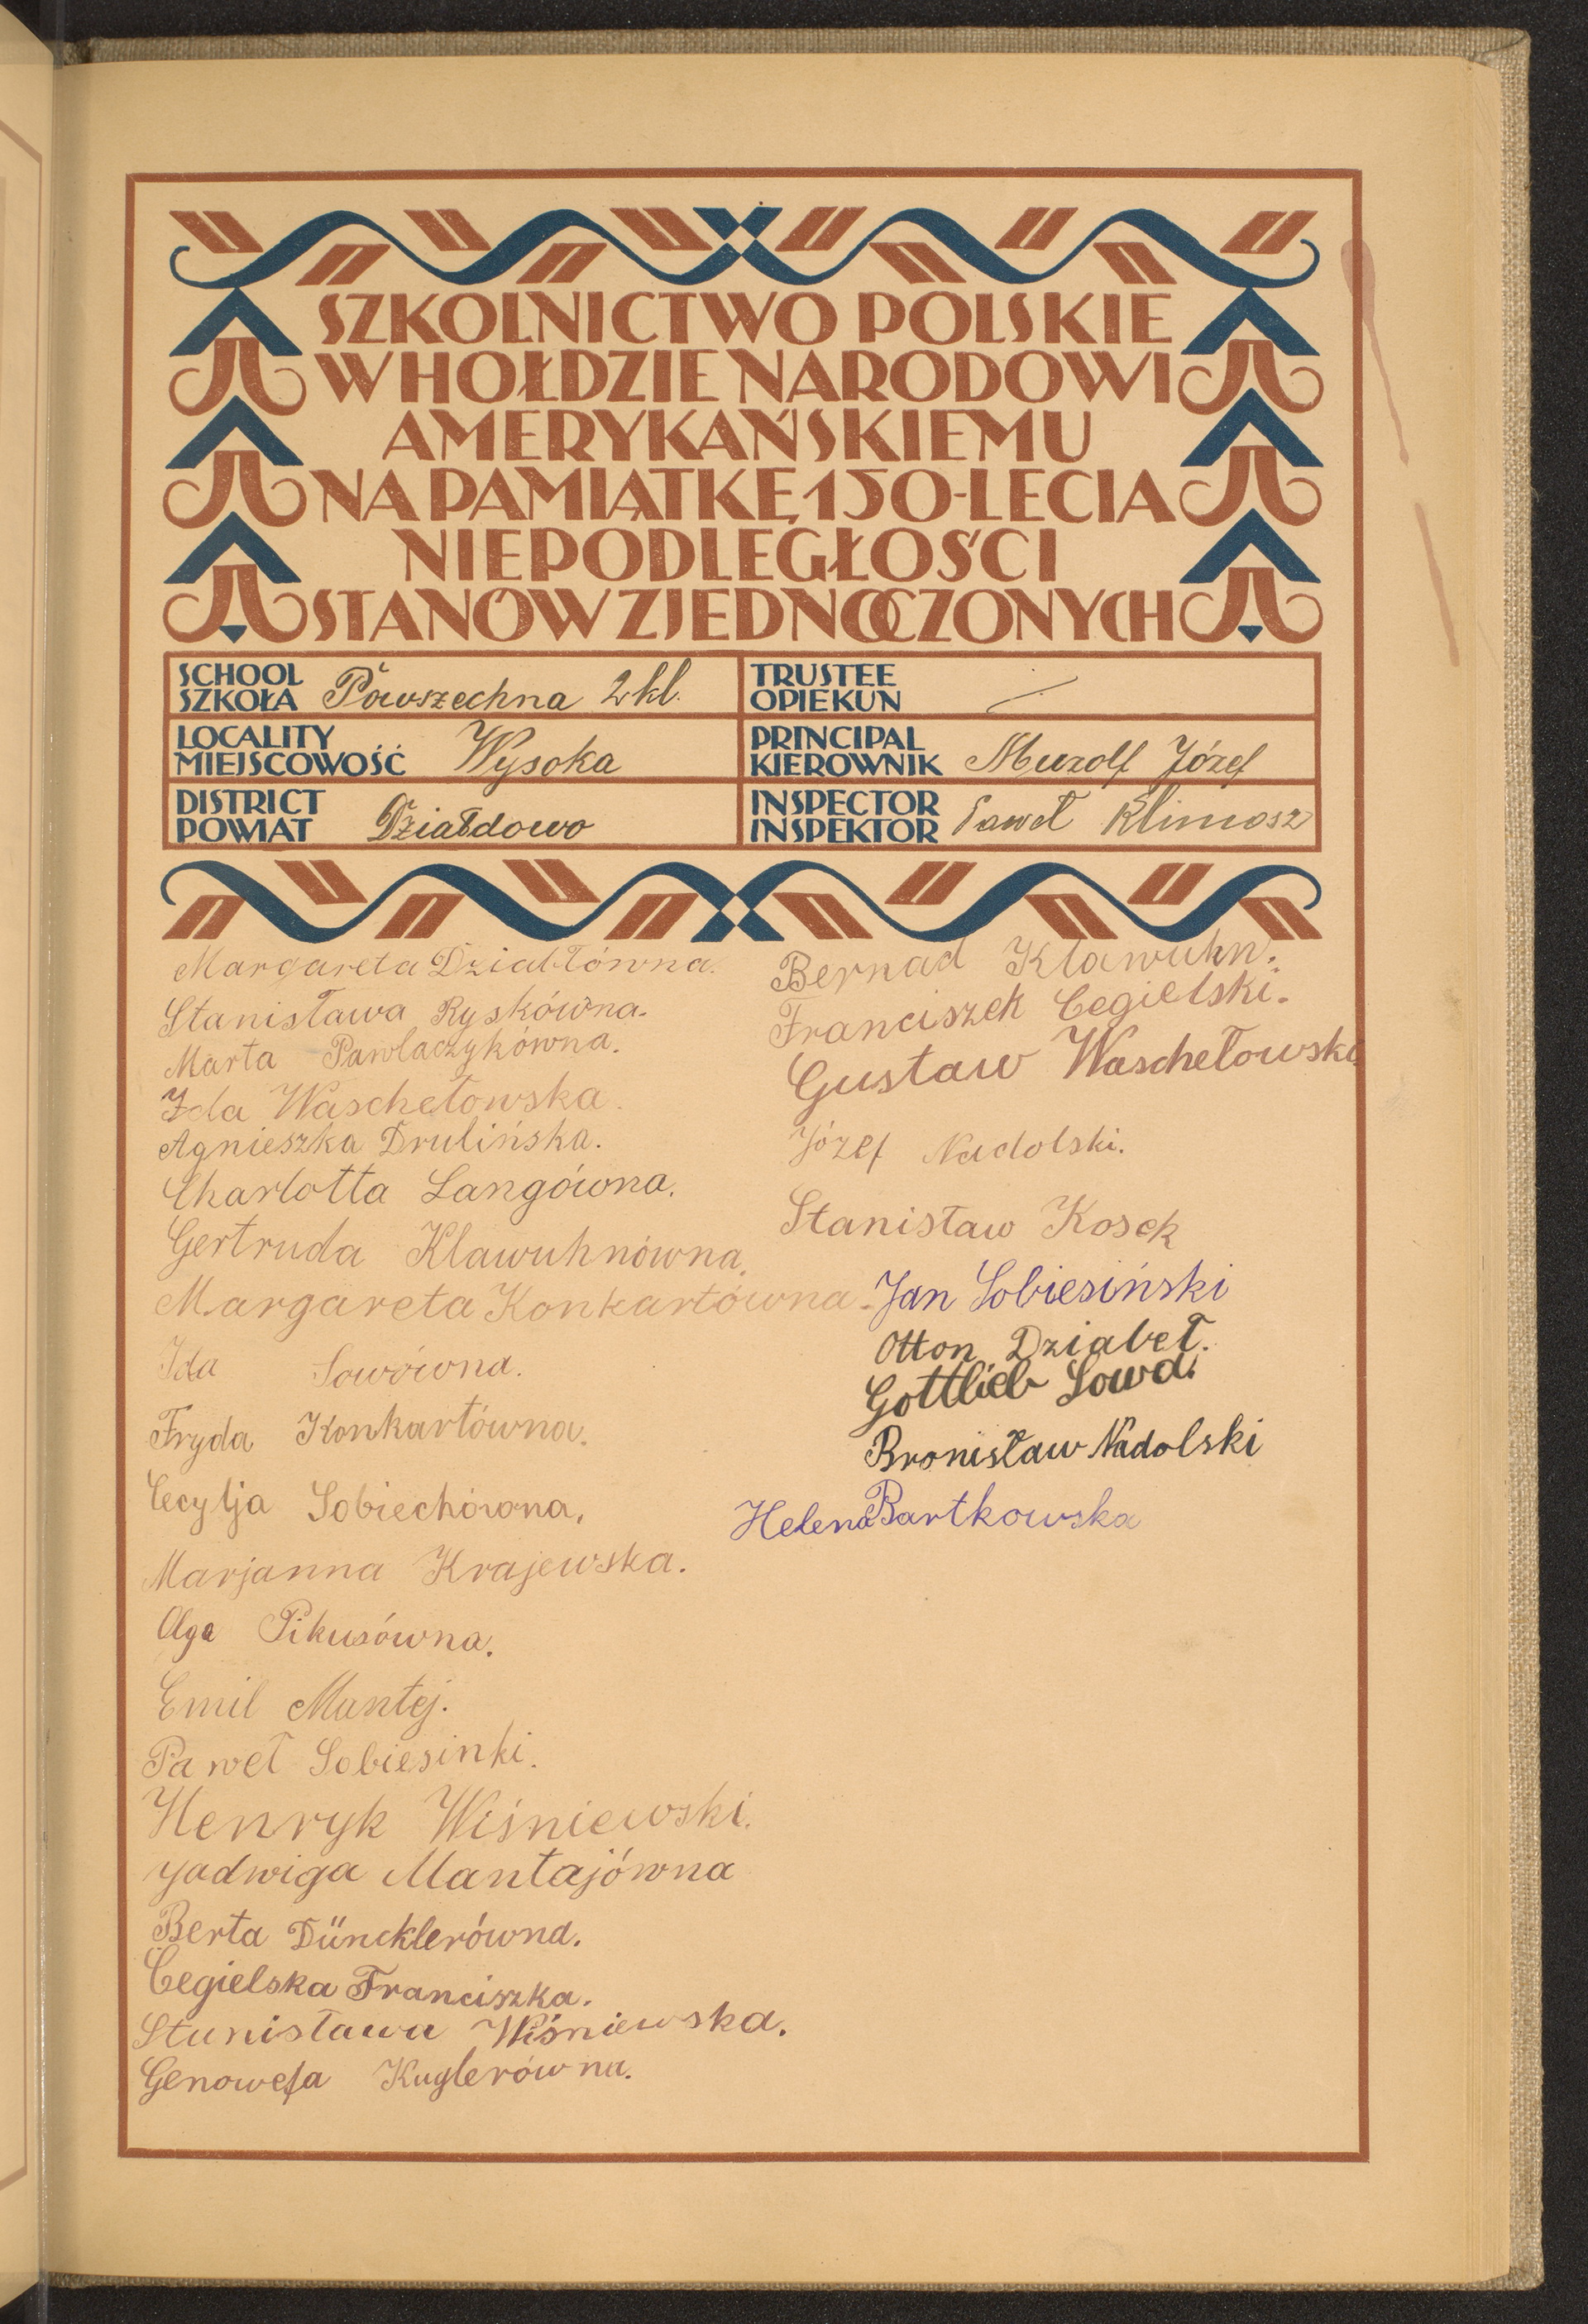 SZKOLNICTWO POLSKIE
W HOŁDZIE NARODOWI
AMERYKAŃSKIEMU
NA PAMIĄTKĘ 150-LECIA
NIEPODLEGŁOŚCI
STANÓW ZJEDNOCZONYCH
SCHOOL
SZKOŁA Powszechna 2 kl.
TRUSTEE
OPIEKUN
LOCALITY
MIEJSCOWOŚĆ Wysoka
PRINCIPAL
KIEROWNIK Muzolf Józef
DISTRICT
POWIAT Działdowo
INSPECTOR
INSPEKTOR Paweł Klimosz
Margareta Działtówna.
Stanisława Ryskówna.
Marta Pawlaczykówna.
Ida Waschetowska.
Agnieszka Drulińska.
Charlotta Langówna.
Gertruda Klawuhnówna.
Margareta Konkartówna.
Ida Sowówna.
Fryda Konkartówna.
Cecylja Sobiechówna.
Marjanna Krajewska.
Olga Pikusówna.
Emil Mantej.
Paweł Sobiesinki.
Henryk Wiśniewski.
Jadwiga Mantajówna
Berta Düncklerówna.
Cegielska Franciszka.
Stanisława Wiśniewska.
Genowefa Kuglerówna.
Bernad Klawuhn.
Franciszek Cegielski.
Gustaw Waschetowski.
Józef Nadolski.
Stanisław Kosek
Jan Sobiesiński
Otton Dziabeł.
Gottlieb Sowa.
Bronisław Nadolski
Helena Bartkowska